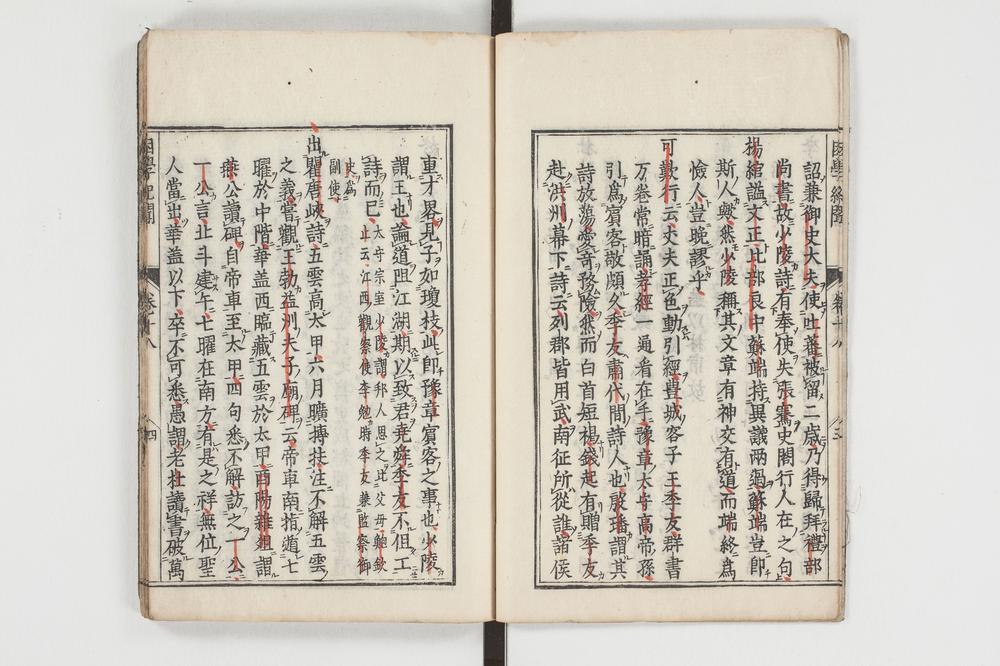 詔兼御史大夫使吐蕃被留二歳乃得歸拜禮部
尚書故少陵詩有奉使失張騫史閣行人在之句
楊綰諡文正比部郎中蘇端持異議兩過蘇端豈卽
斯人歟然少陵稱其文章有神交有道而端終爲
憸人豈晩謬乎
可歎行云丈夫正色動引經豊城客子王季友群書
万卷常暗誦孝經一通看在手豫章太守高帝孫
引爲賓客敬頗久季友肅代間詩人也殷璠謂其
詩放蕩愛奇務險然而白首短褐錢起有贈季友
赴洪州幕下詩云列郡皆用武南征所從誰諸侯
車才畧見子如瓊枝此卽豫章賓客之事也少陵
謂王也論道阻江湖期以致君堯舜季友不但工
詩而已太守宗室少陵謂邦人思之比父母鮑欽
止云江西觀察使李勉時季友兼監察御
史爲
副使
出瞿唐峽詩五雲高太甲六月曠摶扶注不解五雲
之義嘗觀王勃益州夫子廟碑云帝車南指遁七
曜於中階華盖西臨藏五雲於太甲酉陽雜俎謂
燕公讀碑自帝車至太甲四句悉不解訪之一公
一公言北斗建午七曜在南方有是之祥無位聖
人當出華盖以下卒不可悉愚謂老杜讀書破萬
困學紀聞
卷十八
四